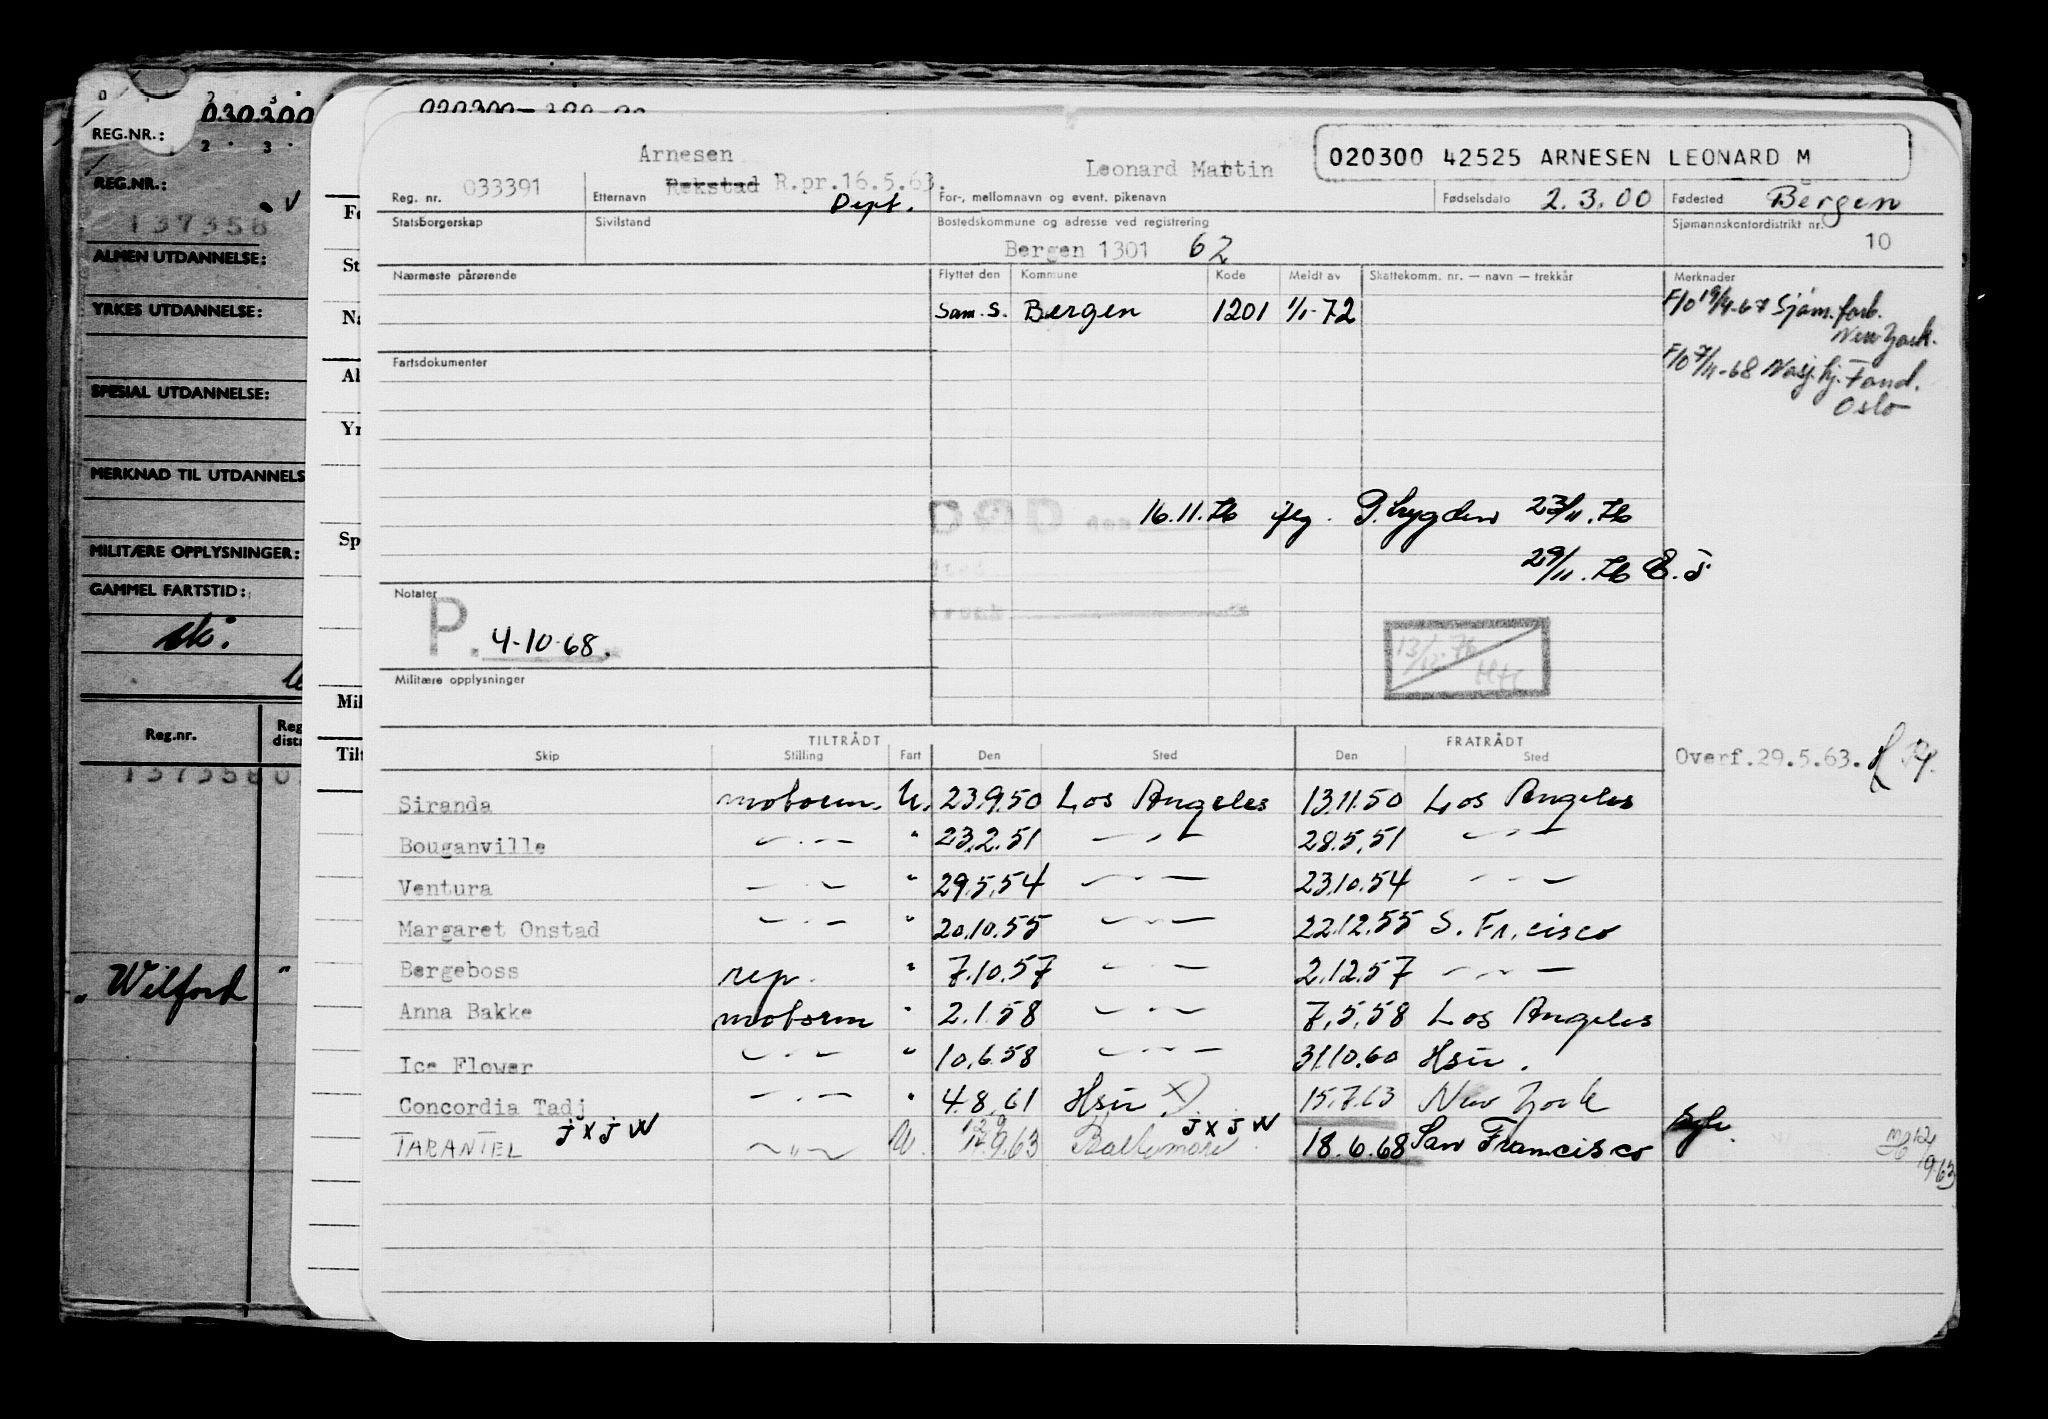 030300
020300
REG.NR.:
REG.NR.:
137358
ALMEN UTDANNELSE:
YRKES UTDANNELSE:
SPESIAL UTDANNELSE:
MERKNAD TIL UTDANNELS
MILITÆRE OPPLYSNINGER:
GAMMEL FARTSTID:
Reg.nr.
Reg
distr
1373580
"Wilford"
Fø
St
Na
Al
Yr
Sp
Mil
Tilt
Arnesen
Leonard Martin
020300 42525 ARNESEN LEONARD M
Reg. nr. 033391 Etternavn Rekstad R.pr.16.5.63. Dept. For-, mellomnavn og event. pikenavn Fødselsdato 2.3.00 Fødested Bergen
Statsborgerskap Sivilstand Bostedskommune og adresse ved registrering Sjømannskontordistrikt nr. 10
Bergen 1301 62
Nærmeste pårørende Flyttet den Kommune Kode Meldt av Skattekomm. nr. — navn — trekkår Merknader
Sam. S. Bergen 1201 1/1-72
F/o 19/4-67 Sjøm.forb.
New York.
F/o 7/11-68 Nosj.hj.Fond.
Oslo
Fartsdokumenter
16.11.76 flg. P. Lygden 23/11.76
29/11.76
Notater
P. 4-10-68.
13/12.76
Militære opplysninger
TILTRÅDT FRATRÅDT
Skip Stilling Fart Den Sted Den Sted
Overf.29.5.63.
Siranda motorm. U. 23.9.50 Los Angeles 13.11.50 Los Angeles
Bouganville —"— " 23.2.51 —"— 28.5.51 —"—
Ventura —"— " 29.5.54 —"— 23.10.54 —"—
Margaret Onstad —"— " 20.10.55 —"— 22.12.55 S. Fr.cisco
Bergeboss rep. " 7.10.57 —"— 2.12.57 —"—
Anna Bakke motorm " 2.1.58 —"— 7.5.58 Los Angeles
Ice Flower —"— " 10.6.58 —"— 31.10.60 Hsu.
Concordia Tadj —"— " 4.8.61 Hsu. X) 15.7.63 New York
TARANTEL J X J W —"— U. 12.9.63 Baltimore J X J W 18.6.68 San Francisco